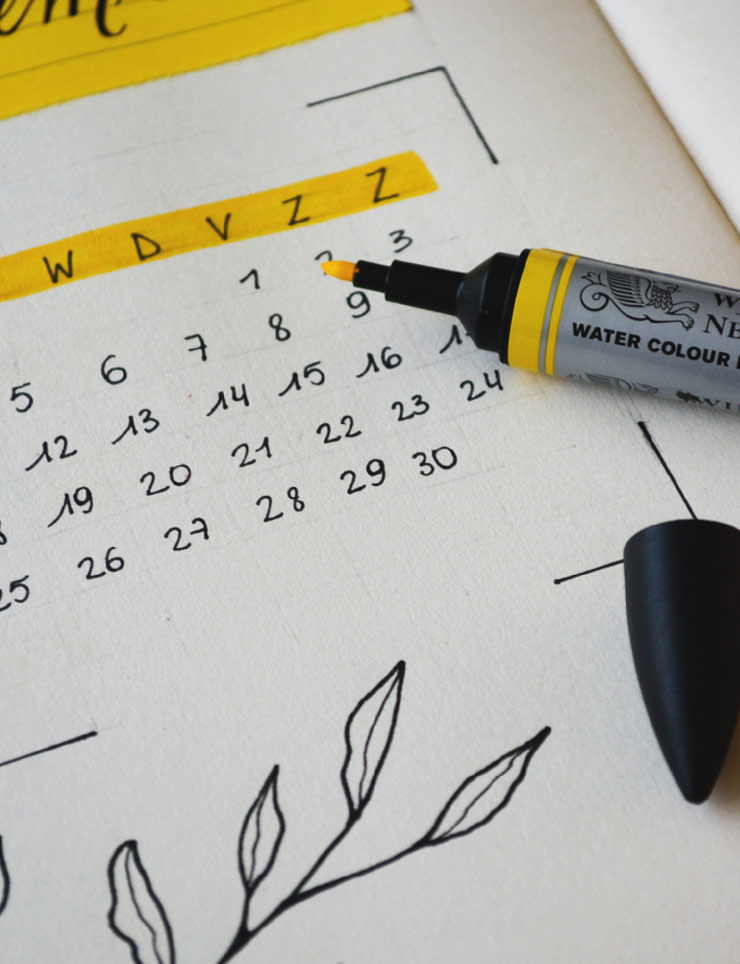 em
W D V Z Z
1 2 3
5 6 7 8 9
12 13 14 15 16
19 20 21 22 23 24
25 26 27 28 29 30
W
NE
WATER COLOUR